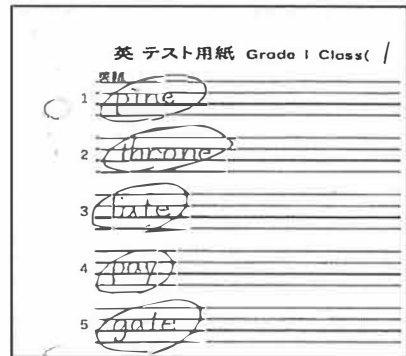 英 テスト用紙 Grade 1 Class( 1
英訳
1 pine
2 throne
3
4 pay
5 gate